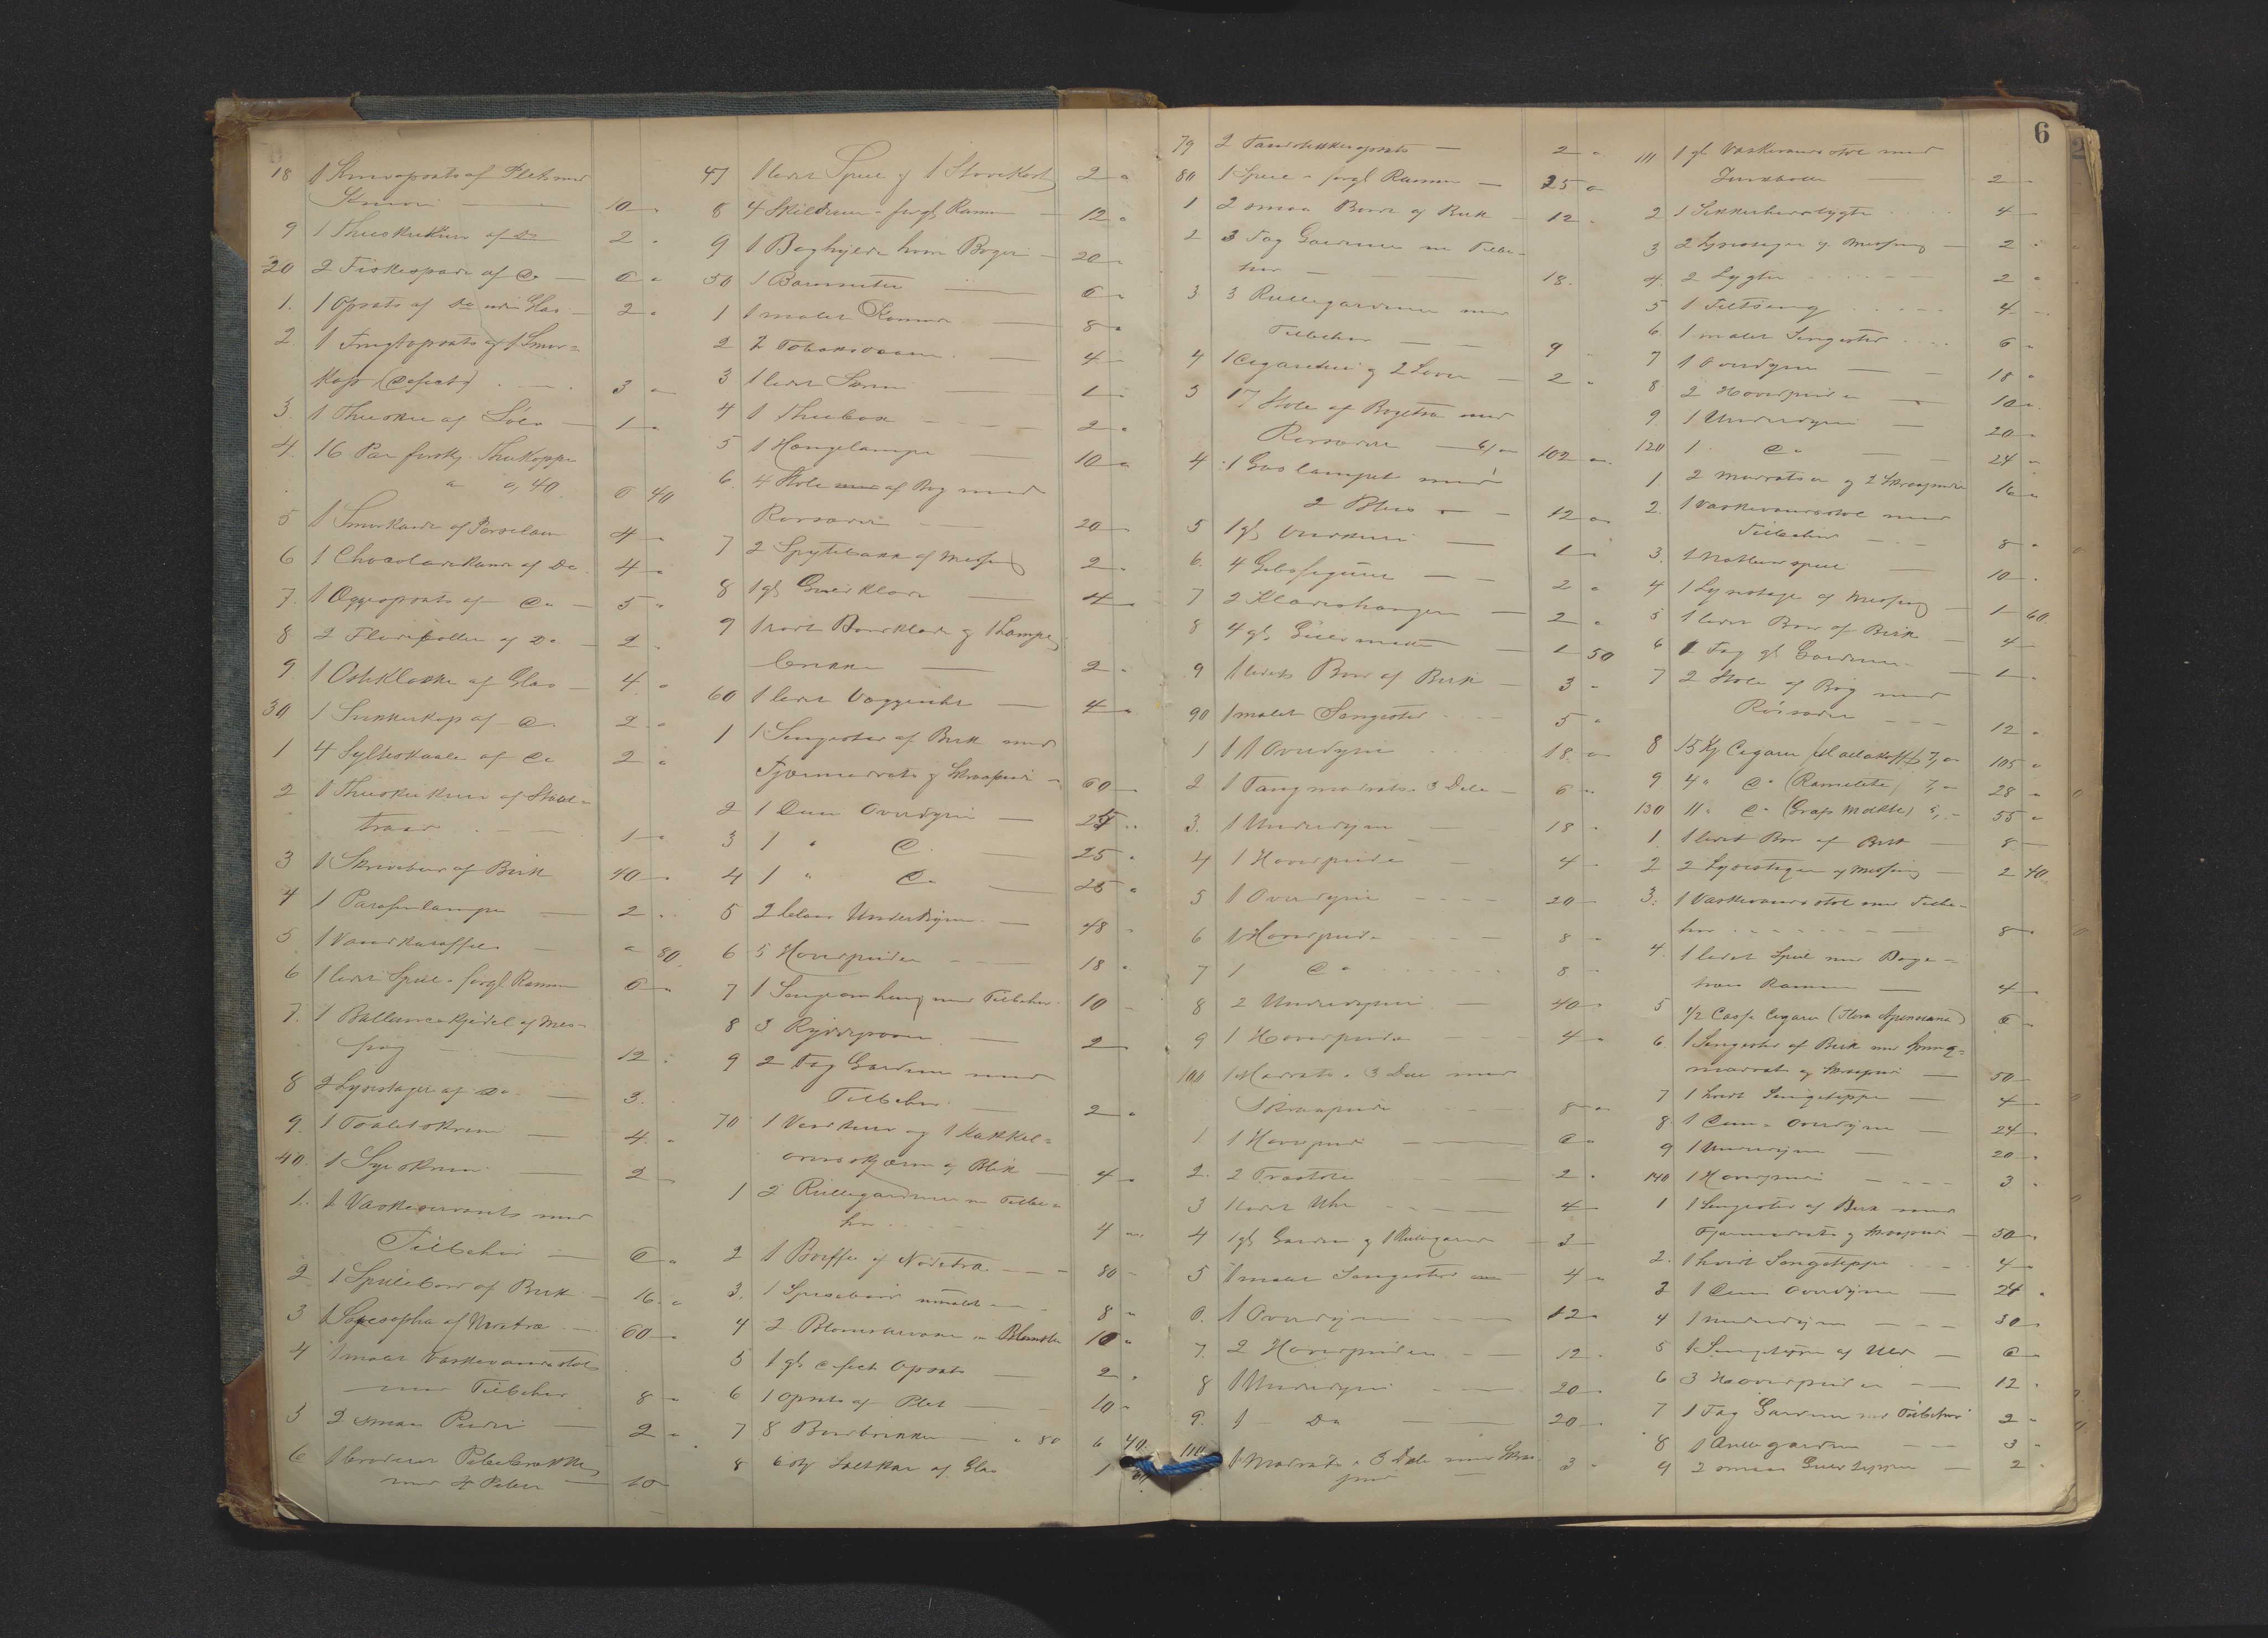 18 1 Knivopsats af Plet med
10 "
9 1 Theeskeskuur af Do 2 "
20 2 Fiskespader af Do — 6 "
1. 1 Opsats af Do uden Glas — 2 "
2. 1 Frugtopsats og 1 Smør=
kop (defect) 3 "
3. 1 Theeskee af Sölv — 1 "
4. 16 Par forskj. Theekopper
a 0,40 6 40
5 1 Smørkande af Porcelain 4 "
6 1 Chocoladekande af Do 4 "
7. 1 Æggeopsats af Do — 5 "
8 2 Flødepotter af Do — 2 "
9. 1 Osteklokke af Glas — 4 "
30 1 Sukkerkop af Do 2 "
1 4 Sylteskaale af Do 2 "
2 1 Theeskekurv af Staal=
traad 1 "
3 1 Skrivebord af Birk 40 "
4 1 Parafinlampe — 2 "
5 1 Vandkaraffel — " 80
6 1 lidet Speil i forgl Ramme 6 "
7. 1 Ballancekjedel af Mes=
sing 12 "
8 2 Lysestager af Do — 3 "
9. 1 Toiletskrin — 4 "
40. 1 Syeskrin — 2 "
1. 1 Vaskeservants med
Tilbehør — 6 "
2 1 Spillebord af Birk — 16 "
3 1 af 60 "
4 1 malet Vaskevandsstol
med Tilbehør 8 "
5 2 smaa Puder — 2 "
6 1 broderet Pibebrække
med 4 Piber — 10 "
47 1 lidet Speil og 1 Storekort 2 "
8 4 Skilderier i forgl. Ramme — 12 "
9 1 Boghylde hvori Bøger — 20 "
50 1 Barometer — 6 "
1 1 malet — 8 "
2 2 Tobaksdaaser — 4 "
3 1 lidet Skrin — 1 "
4 1 Theebox — 2 "
5 1 Hængelampe — 10 "
6. 4 Stole af Bøg med
Rørsæder — 20 "
7 2 Spyttebakker af Messing 2 "
8 1 gl Gulvklæde — 4 "
9 1 rødt Bordklæde og 1 Lampe
brikke — 2 "
60 1 lidet Væggeuhr — 4 "
1 1 Sengested af Birk med
Fjærmadrats og Skraapude — 60 "
2 1 Duun Overdyne — 25 "
3 1 " Do — 25 "
4 1 " Do — 25 "
5 2 Underdyner — 48 "
6 5 Hovedpuder — 18 "
7 1 Sengeomhæng med Tilbehør 10 "
8 3 — 2
9 2 Fag Gardiner med
Tilbehør — 2 "
70 1 og 1 Kakkel=
ovnsskjærm af Blik — 4 "
1 2 Rullegardiner m Tilbe=
hør 4 "
2 1 Buffe af Nødetræ — 80 "
3. 1 Spisebord umalet 8 "
4 2 m Blomster 10 "
5 1 gl defect Opsats — 2 "
6 1 Opsats af Plet — 10 "
7 8 Bordbrikker — " 80 6 40
8 6 stk Saltkar af Glas 1
79 2 Tandstikkeropsats — 2 "
80 1 Speil i forgl Ramme — 25 "
1 2 smaa Borde af Birk — 12 "
2 3 Fag Gardiner m Tilbe=
hør — 18 "
3 3 Rullegardiner med
Tilbehør — 9 "
4 1 Cigaretui og 2 — 2 "
5 17 Stole af Bøgetræ med
Rørsæder — 6/" 102 "
4 1 Gaslampet med
2 Blus — 12 "
5 1 gl — 1 "
6. 4 Gibsfigurer — 2 "
7 2 Klædeshængere — 2 "
8 4 gl Gulvmatter — 1 50
9 1 lidets Bord af Birk — 3 "
90 1 malet Sengested 5 "
1 1 Overdyne 18 "
2 1 Tangmadrats i 3 Dele — 6 "
3. 1 Underdyne — 18 "
4 1 Hovedpude — 4 "
5 1 Overdyne — 20 "
6 1 Hovedpude — 8 "
7 1 Do 8 "
8 2 Underdyner — 40 "
9 1 Hovedpude — 4 "
100 1 Madrats i 3 Dele med
Skraapude — 8 "
1 1 Hovedpude — 6 "
2. 2 Træstole — 2 "
3 1 lidet Uhr — 4 "
4 1 gl Gardin og 1 Rullegardin — 3 "
5 1 malet Sengested — 4 "
6. 1 Overdyne — 12 "
7. 2 Hovedpuder — 12 "
8 1 Underdyne — 20 "
9. 1 — Do — 20 "
110 1 Madrats i 3 Dele med Skraa
pude — 3 "
6
111 1 gl Vaskevandsstol med
— 2 "
2 1 Sikkerhedslygte 4 "
3 2 Lysestager af Messing — 2 "
4. 2 Lygter 2 "
5 1 Feltseng 4 "
6. 1 malet Sengested 6 "
7 1 Overdyne — 18 "
8 2 Hovedpuder — 10 "
9 1 Underdyne — 20 "
120 1 Do — 24 "
1 2 Madratser og 2 Skraapuder 16 "
2. 1 Vaskevandsstol med
Tilbehør — 8 "
3. 1 — 10 "
4 1 Lysestage af Messing — 1 60
5 1 lidet Bord af Birk — 4 "
6 1 Fag gl Gardiner — 1 "
7 2 Stole af Bøg med
Rørsæder — 12 "
8 15 Cigarer 7," 105 "
9 4 " Do 7," 28 "
130 11 " Do 5," 55 "
1. 1 lidet Bord af Birk — 8 "
2 2 Lysestager af Messing — 2 40
3. 1 Vaskevandsstol med Tilbe=
hør 8 "
4. 1 lidet Speil med Bøge=
træs Ramme — 4 "
5 1/2 Casse Cigarer 6 "
6. 1 Sengested af Birk med Spring=
madrat og Skraapude — 50 "
7 1 hvidt Sengeteppe — 4 "
8. 1 Duun Overdyne — 24 "
9 1 Underdyne — 20 "
140 1 Hovedpude — 3 "
1 1 Sengested af Birk med
Fjærmadrats og Skraapude — 50 "
2. 1 hvidt Sengeteppe 4 "
3 1 Duun Overdyne — 24 "
4 1 Underdyne — 30 "
5 1 af Uld — 6 "
6 3 Hovedpuder — 12 "
7 1 Fag Gardiner med Tilbehør 2 "
8 1 Rullegardin — 3 "
9 2 smaa Gulvtepper — 2 "